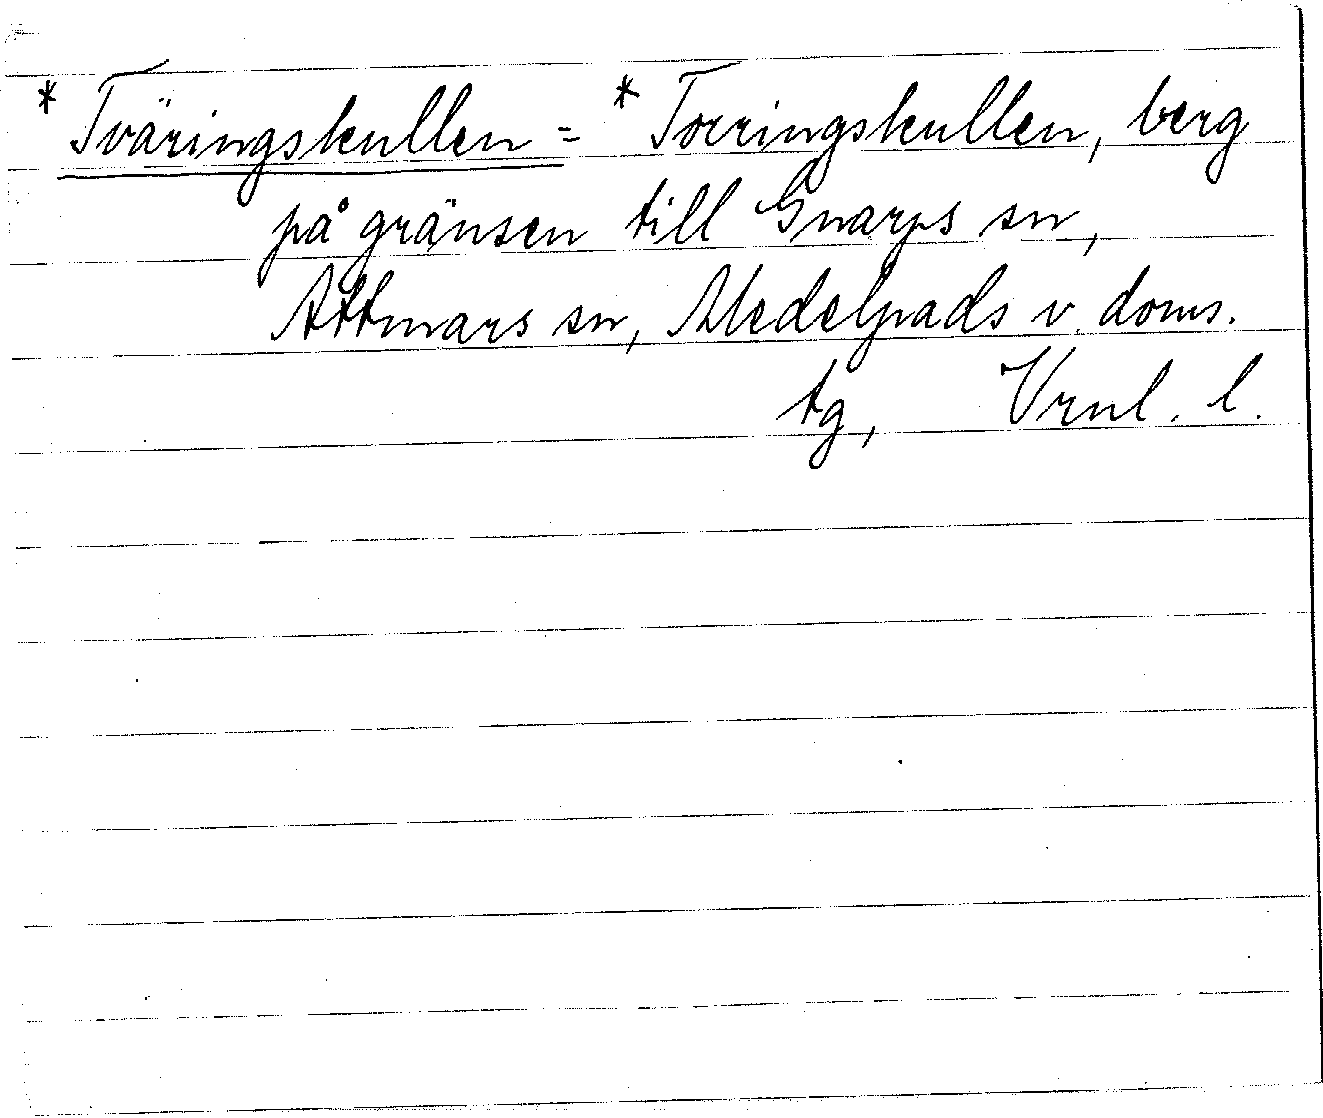 * Tväringskullen = * Torringskullen, berg
på gränsen till Gnarps sn,
Attmars sn, Medelpads v. doms.
tg, Vrnl. l.